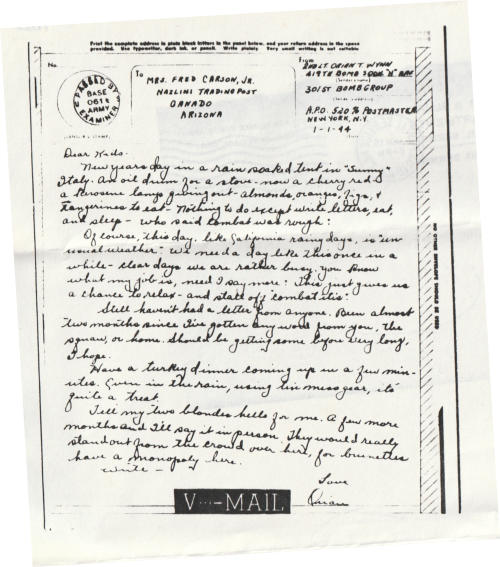 Print the complete address in plain block letters in the panel below, and your return address in the space
provided. Use typewriter, dark ink, or pencil. Write plainly. Very small writing is not suitable.
No.
PASSED BY
BASE
0618
ARMY
EXAMINER
To
MRS. FRED CARSON, JR.
NAZLINI TRADING POST
GANADO
ARIZONA
From
2ND LT ORIAN T. WYNN
419TH BOMB SQDN "H" BAR
301ST BOMB GROUP
A.P.O. 520 % POSTMASTER
NEW YORK, N.Y.
1-1-44
Dear Kids:
New years day in a rain soaked tent in "Sunny"
Italy. An oil drum for a stove - now a cherry red -
a kerosene lamp giving out - almonds, oranges, figs, &
tangerines to eat - Nothing to do except write letters, eat,
and sleep - who said combat was rough!
Of course, this day, like California rainy days, is "un-
usual weather". We need a day like this once in a
while - clear days we are rather busy. You know
what my job is, need I say more! This just gives us
a chance to relax - and stall off "combatitis"
Still haven't had a letter from anyone. Been almost
two months since I've gotten any word from you, the
squaw, or home. Should be getting some before very long,
I hope.
Have a turkey dinner coming up in a few min-
utes. Even in the rain, using tin mess gear, it's
quite a treat.
Tell my two blondes hello for me. A few more
months and I'll say it in person. They would really
stand out from the crowd over here, for brunettes
have a monopoly here.
Write -
Love
Orian
V···—MAIL
NO OTHER ENVELOPE SHOULD BE USED